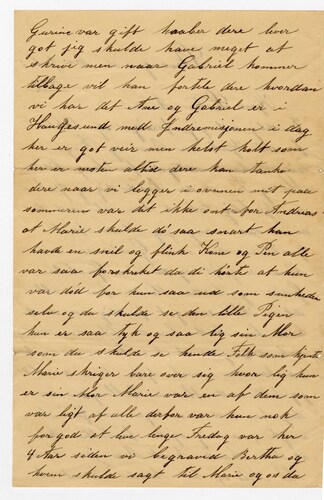 Gurine var gift haaber dere lever
got jeg skulde have meget at
skrive men naar Gabriel kommer
tilbage vil han fortele dere hvordan
vi har det Ane og Gabriel er i
Haugesund med Indremisjonen i dag
her er got veir men helst kolt som
her er nesten altid dere kan tenke
dere naar vi legger i ovnnen mit paa
sommeren var det ikke ont for Andreas
at Marie skulde dö saa snart han
havde en snil og flink Kone og Pen alle
var saa forskreket da di hörte at hun
var död for hun saa ud som sundheden
selv og du skulde se den lille Pigen
hun er saa tyk og saa lig sin Mor
som du skulde se hende Folk som kjente
Marie skriger bare over sig hvor lig hun
er sin Mor Marie var en af dem som
var ligt af alle derfor var hun nok
for god at leve lenge Fredag var her
4 Aar siden vi begraved Bertha og
hvem skulde sagt til Marie og os da